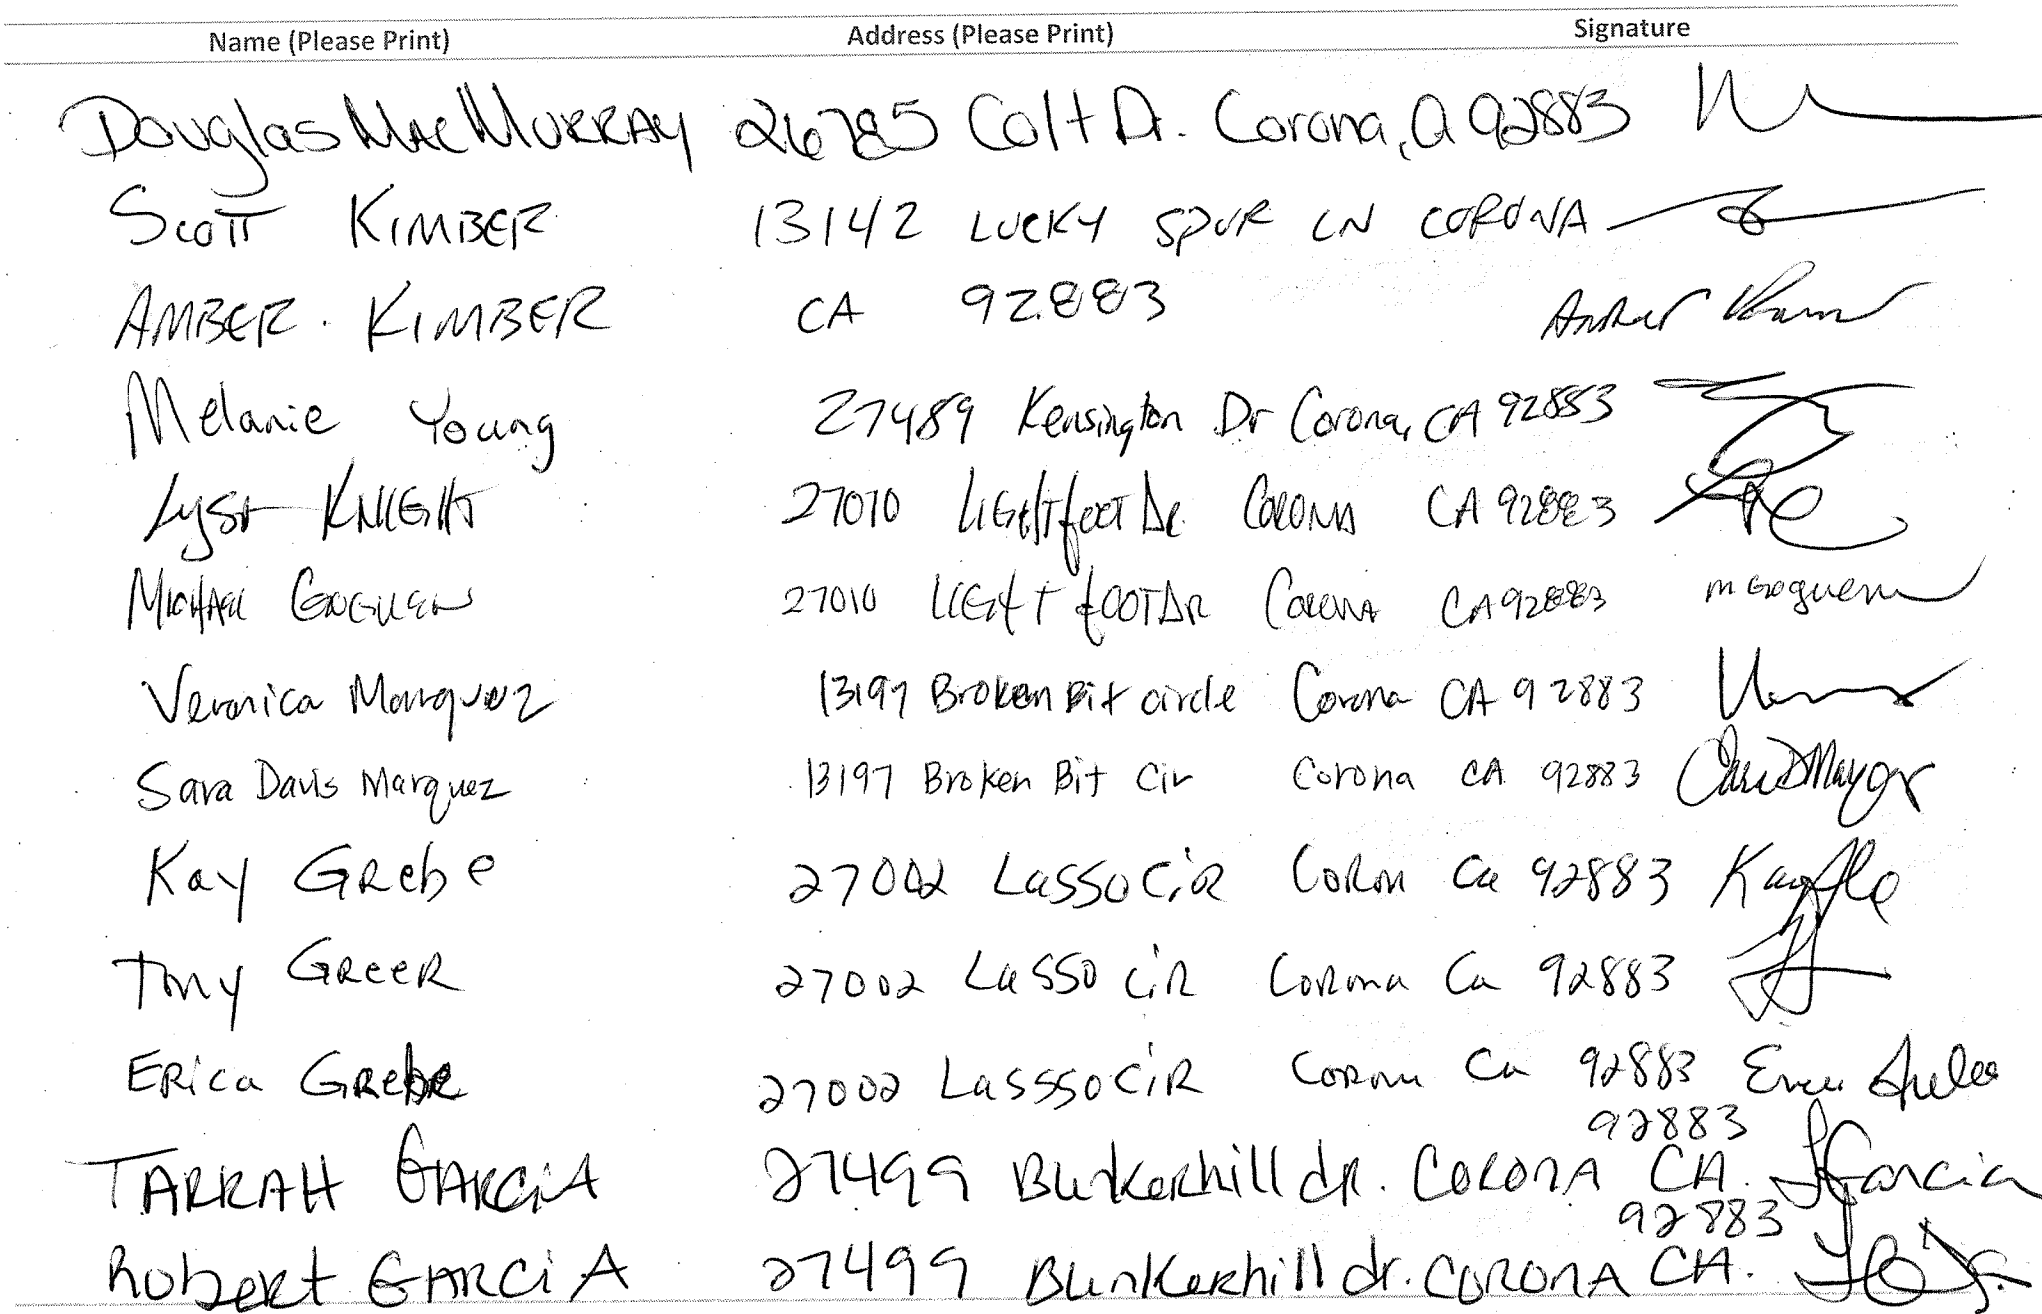 Name (Please Print) Address (Please Print) Signature
Douglas MacMurray 26785 Colt Dr. Corona, CA 92883
Scott Kimber 13142 Lucky Spur Ln Corona
Amber Kimber CA 92883
Melanie Young 27489 Kensington Dr Corona, CA 92883
Lysa Knight 27010 Lightfoot Dr Corona CA 92883
Michael Goguen 27010 Lightfoot Dr Corona CA 92883 M Goguen
Veronica Marquez 13197 Broken Bit circle Corona CA 92883
Sara Davis Marquez 13197 Broken Bit Cir Corona CA 92883
Kay Grebe 27002 Lasso Cir Corona Ca 92883 Kay
Tony Greer 27002 Lasso Cir Corona Ca 92883
Erica Grebe 27002 Lassso Cir Corona Ca 92883
92883
TARRAH GARCIA 27499 Bunkerhill dr. CORONA CA. Garcia
92883
Robert GARCiA 27499 Bunkerhill dr. CORONA CA.